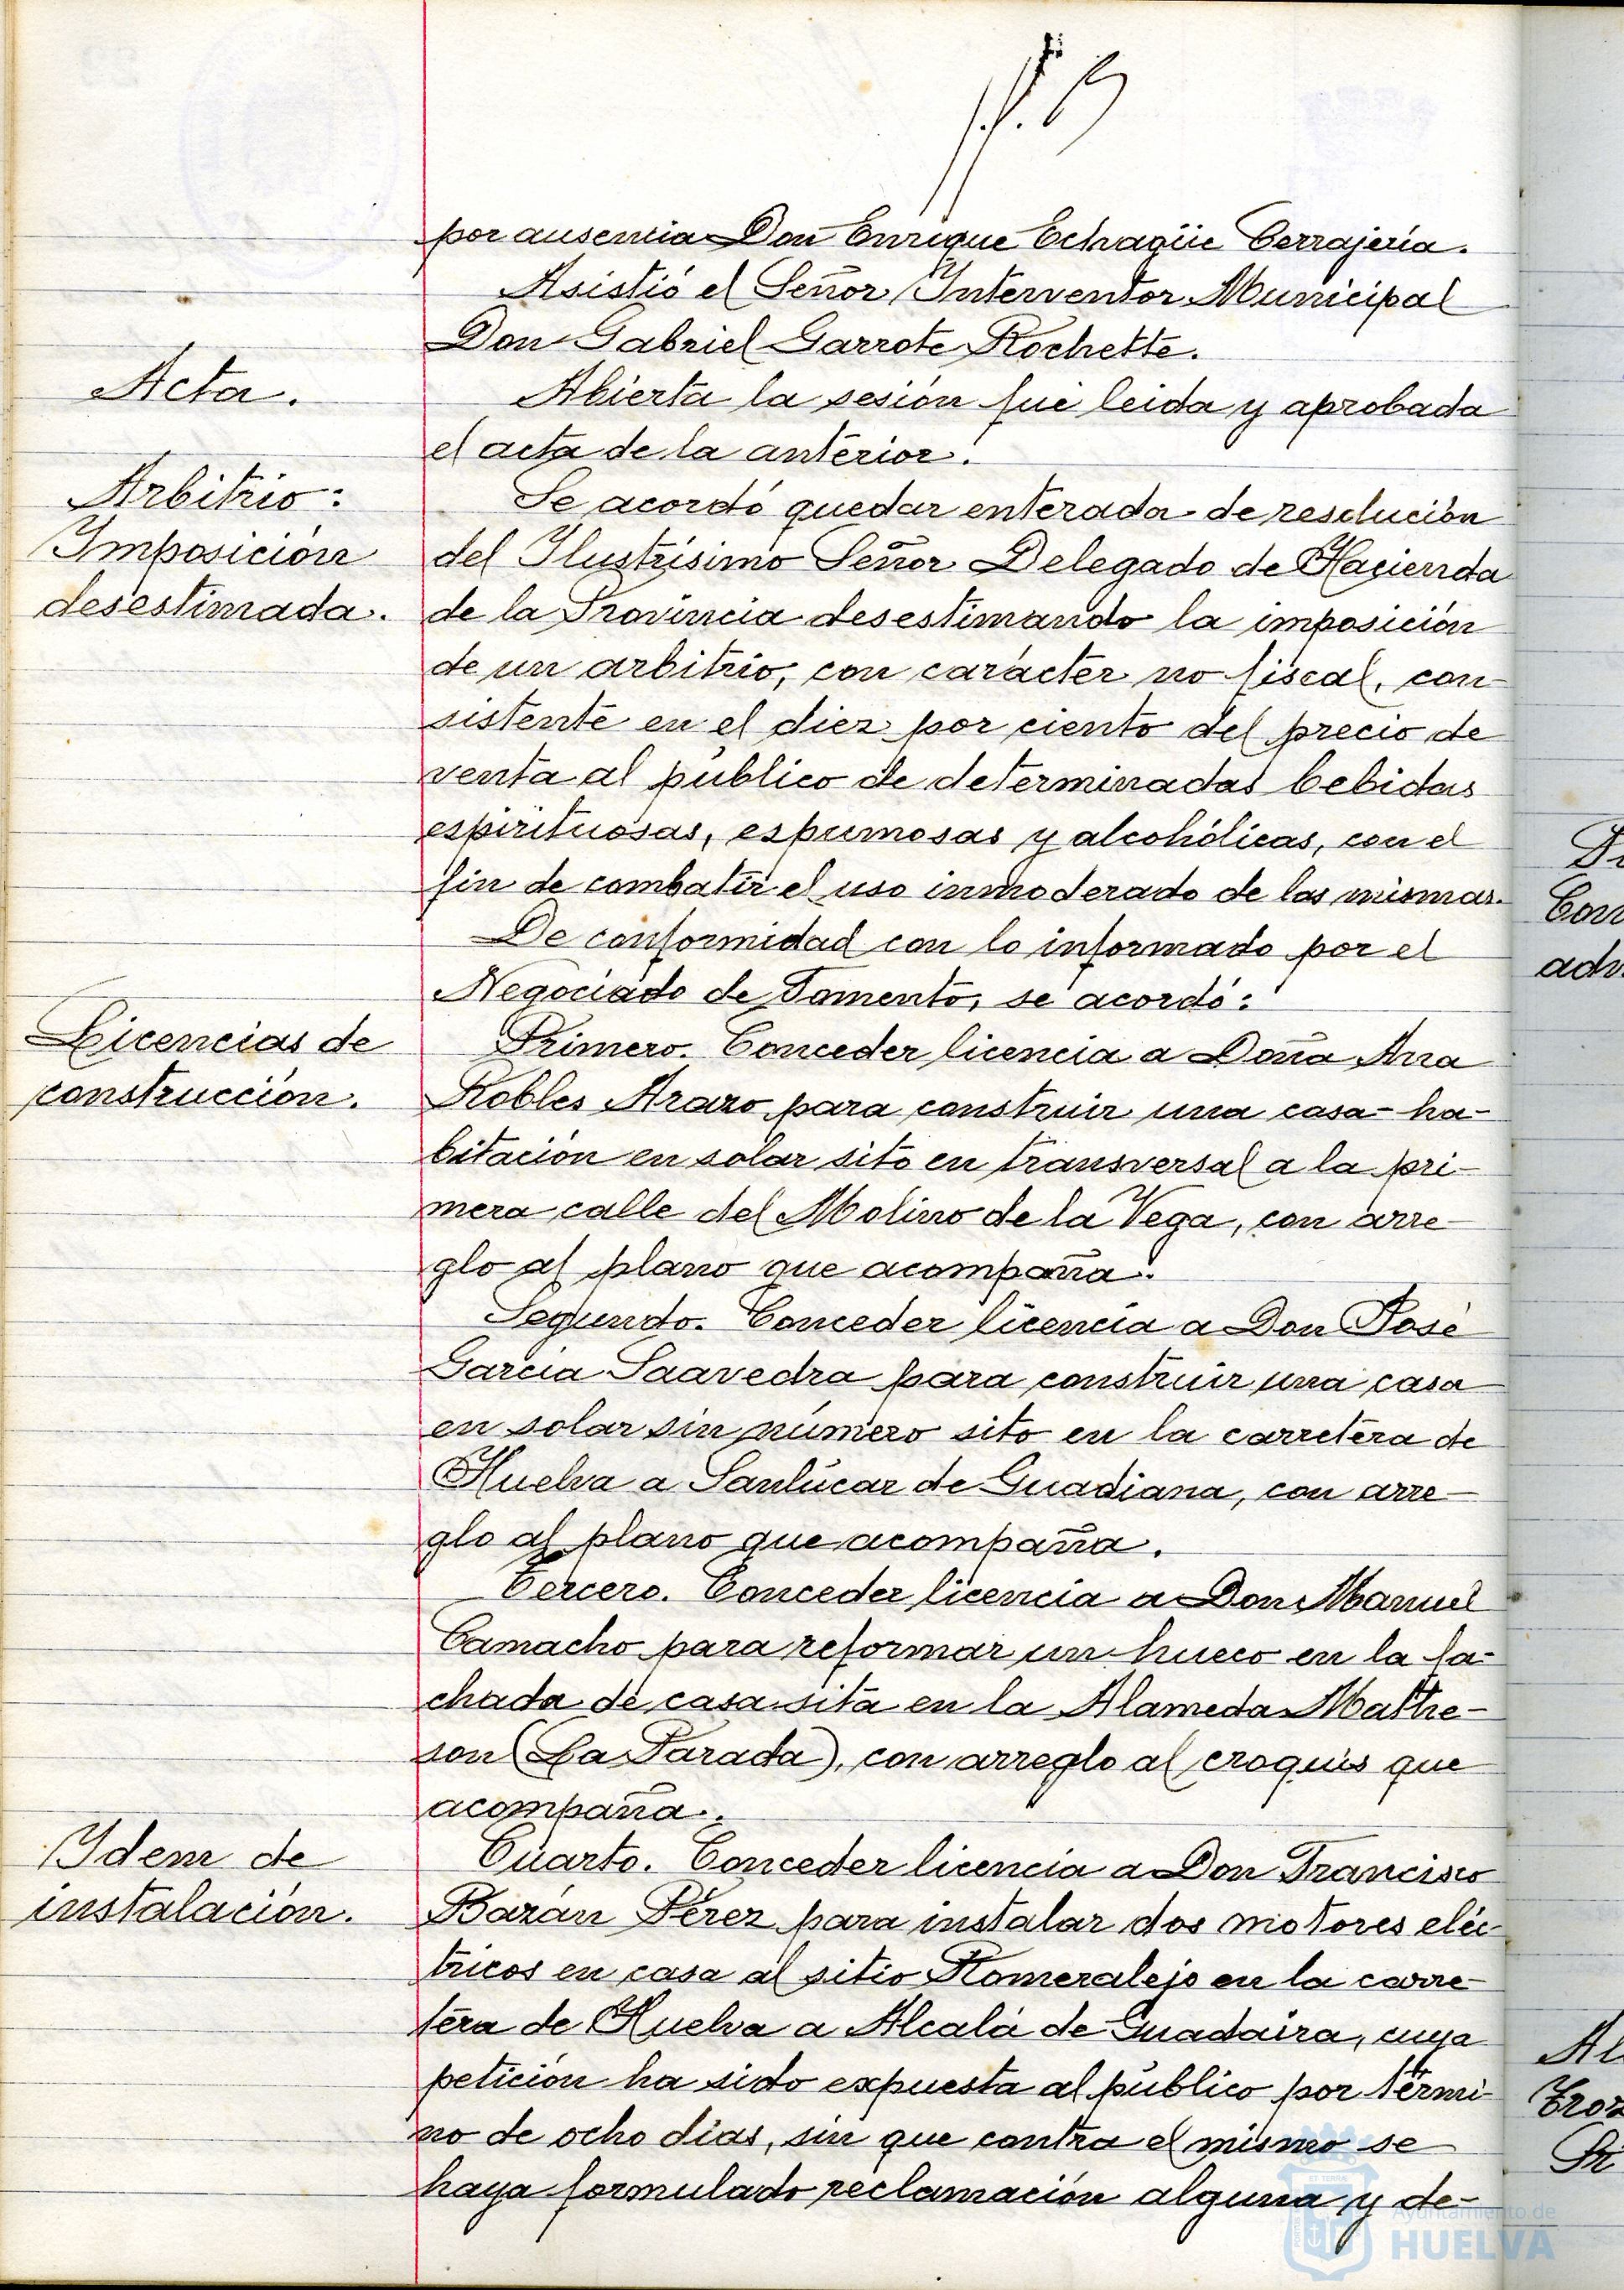 por ausencia Don Enrique Echagüe Cerrajería.
Asistió el Señor Interventor Municipal
Don Gabriel Garrote Rochette.
Acta.
Abierta la sesión fué leida y aprobada
el acta de la anterior.
Arbitrio:
Imposición
desestimada.
Se acordó quedar enterada de resolución
del Ilustrísimo Señor Delegado de Hacienda
de la Provincia desestimando la imposición
de un arbitrio, con carácter no fiscal, con-
sistente en el diez por ciento del precio de
venta al público de determinadas bebidas
espirituosas, espumosas y alcohólicas, con el
fin de combatir el uso inmoderado de las mismas.
De conformidad con lo informado por el
Negociado de Fomento, se acordó:
Licencias de
construcción.
Primero. Conceder licencia a Doña Ana
Robles Arazo para construir una casa-ha-
bitación en solar sito en transversal a la pri-
mera calle del Molino de la Vega, con arre-
glo al plano que acompaña.
Segundo. Conceder licencia a Don José
García Saavedra para construir una casa
en solar sin número sito en la carretera de
Huelva a Sanlúcar de Guadiana, con arre-
glo al plano que acompaña.
Tercero. Conceder licencia a Don Manuel
Camacho para reformar un hueco en la fa-
chada de casa sita en la Alameda Mathe-
son (La Parada), con arreglo al croquis que
acompaña.
Idem de
instalación.
Cuarto. Conceder licencia a Don Francisco
Bazán Pérez para instalar dos motores eléc-
tricos en casa al sitio Romeralejo en la carre-
tera de Huelva a Alcalá de Guadaira, cuya
petición ha sido expuesta al público por térmi-
no de ocho días, sin que contra el mismo se
haya formulado reclamación alguna y de-
Ayuntamiento de
HUELVA